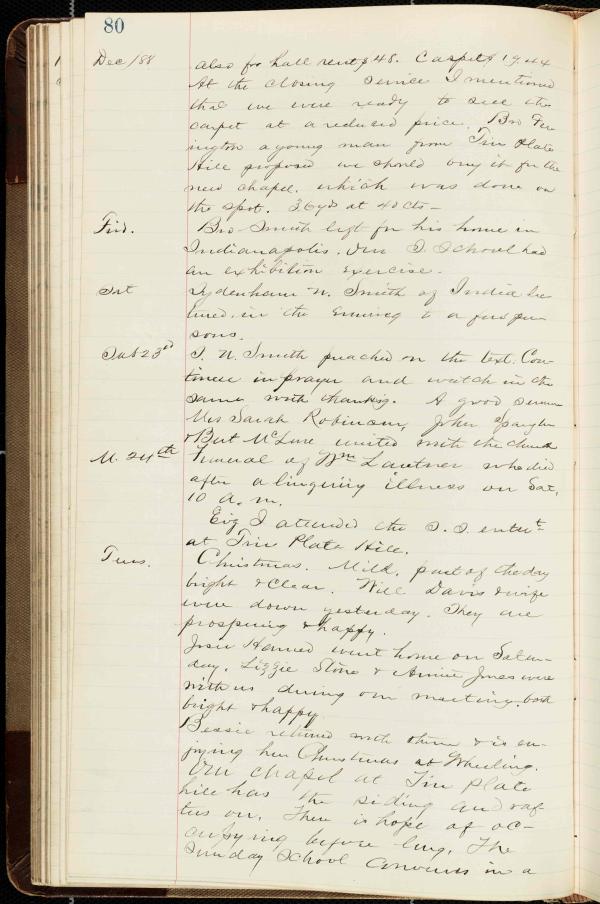 80
Dec /88 also for hall rent $48. Carpet $19.44
At the closing service I mentioned
that we were ready to sell the
carpet at a reduced price. Bro Fer
rington a young man from Tin Plate
Hill proposed we should buy it for the
new chapel. which was done on
the spot. 36 yds at 40 cts—
Frid. Bro Smith left for his home in
Indianapolis. Our S. School had
an exhibition exercise.
Sat Sydenham N. Smith of India lec
tured in the evening to a few per
sons.
Sab 23rd S. N. Smith preached on the text. Con-
tinue in prayer and watch in the
same with thanksg. A good sermon
Mrs Sarah Robinson, John
& Bert McLure united with the church
M. 24th Funeral of Wm Lautner who died
after a lingering illness on Sat,
10 a. m.
Evg I attended the S. S. entert
at Tin Plate Hill.
Tues. Christmas. Mild, part of the day
bright & clear. Will Davis & wife
were down yesterday. They are
prospering & happy.
Josie Hanned went home on Satur-
day. Lizzie Stone & Annie Jones were
with us during our meeting. both
bright & happy
Bessie returned with them & is en-
joying her Christmas at Wheeling.
Our chapel at Tin Plate
hill has the siding and raf
ters on. There is hope of oc-
cupying before long. The
Sunday School convenes in a